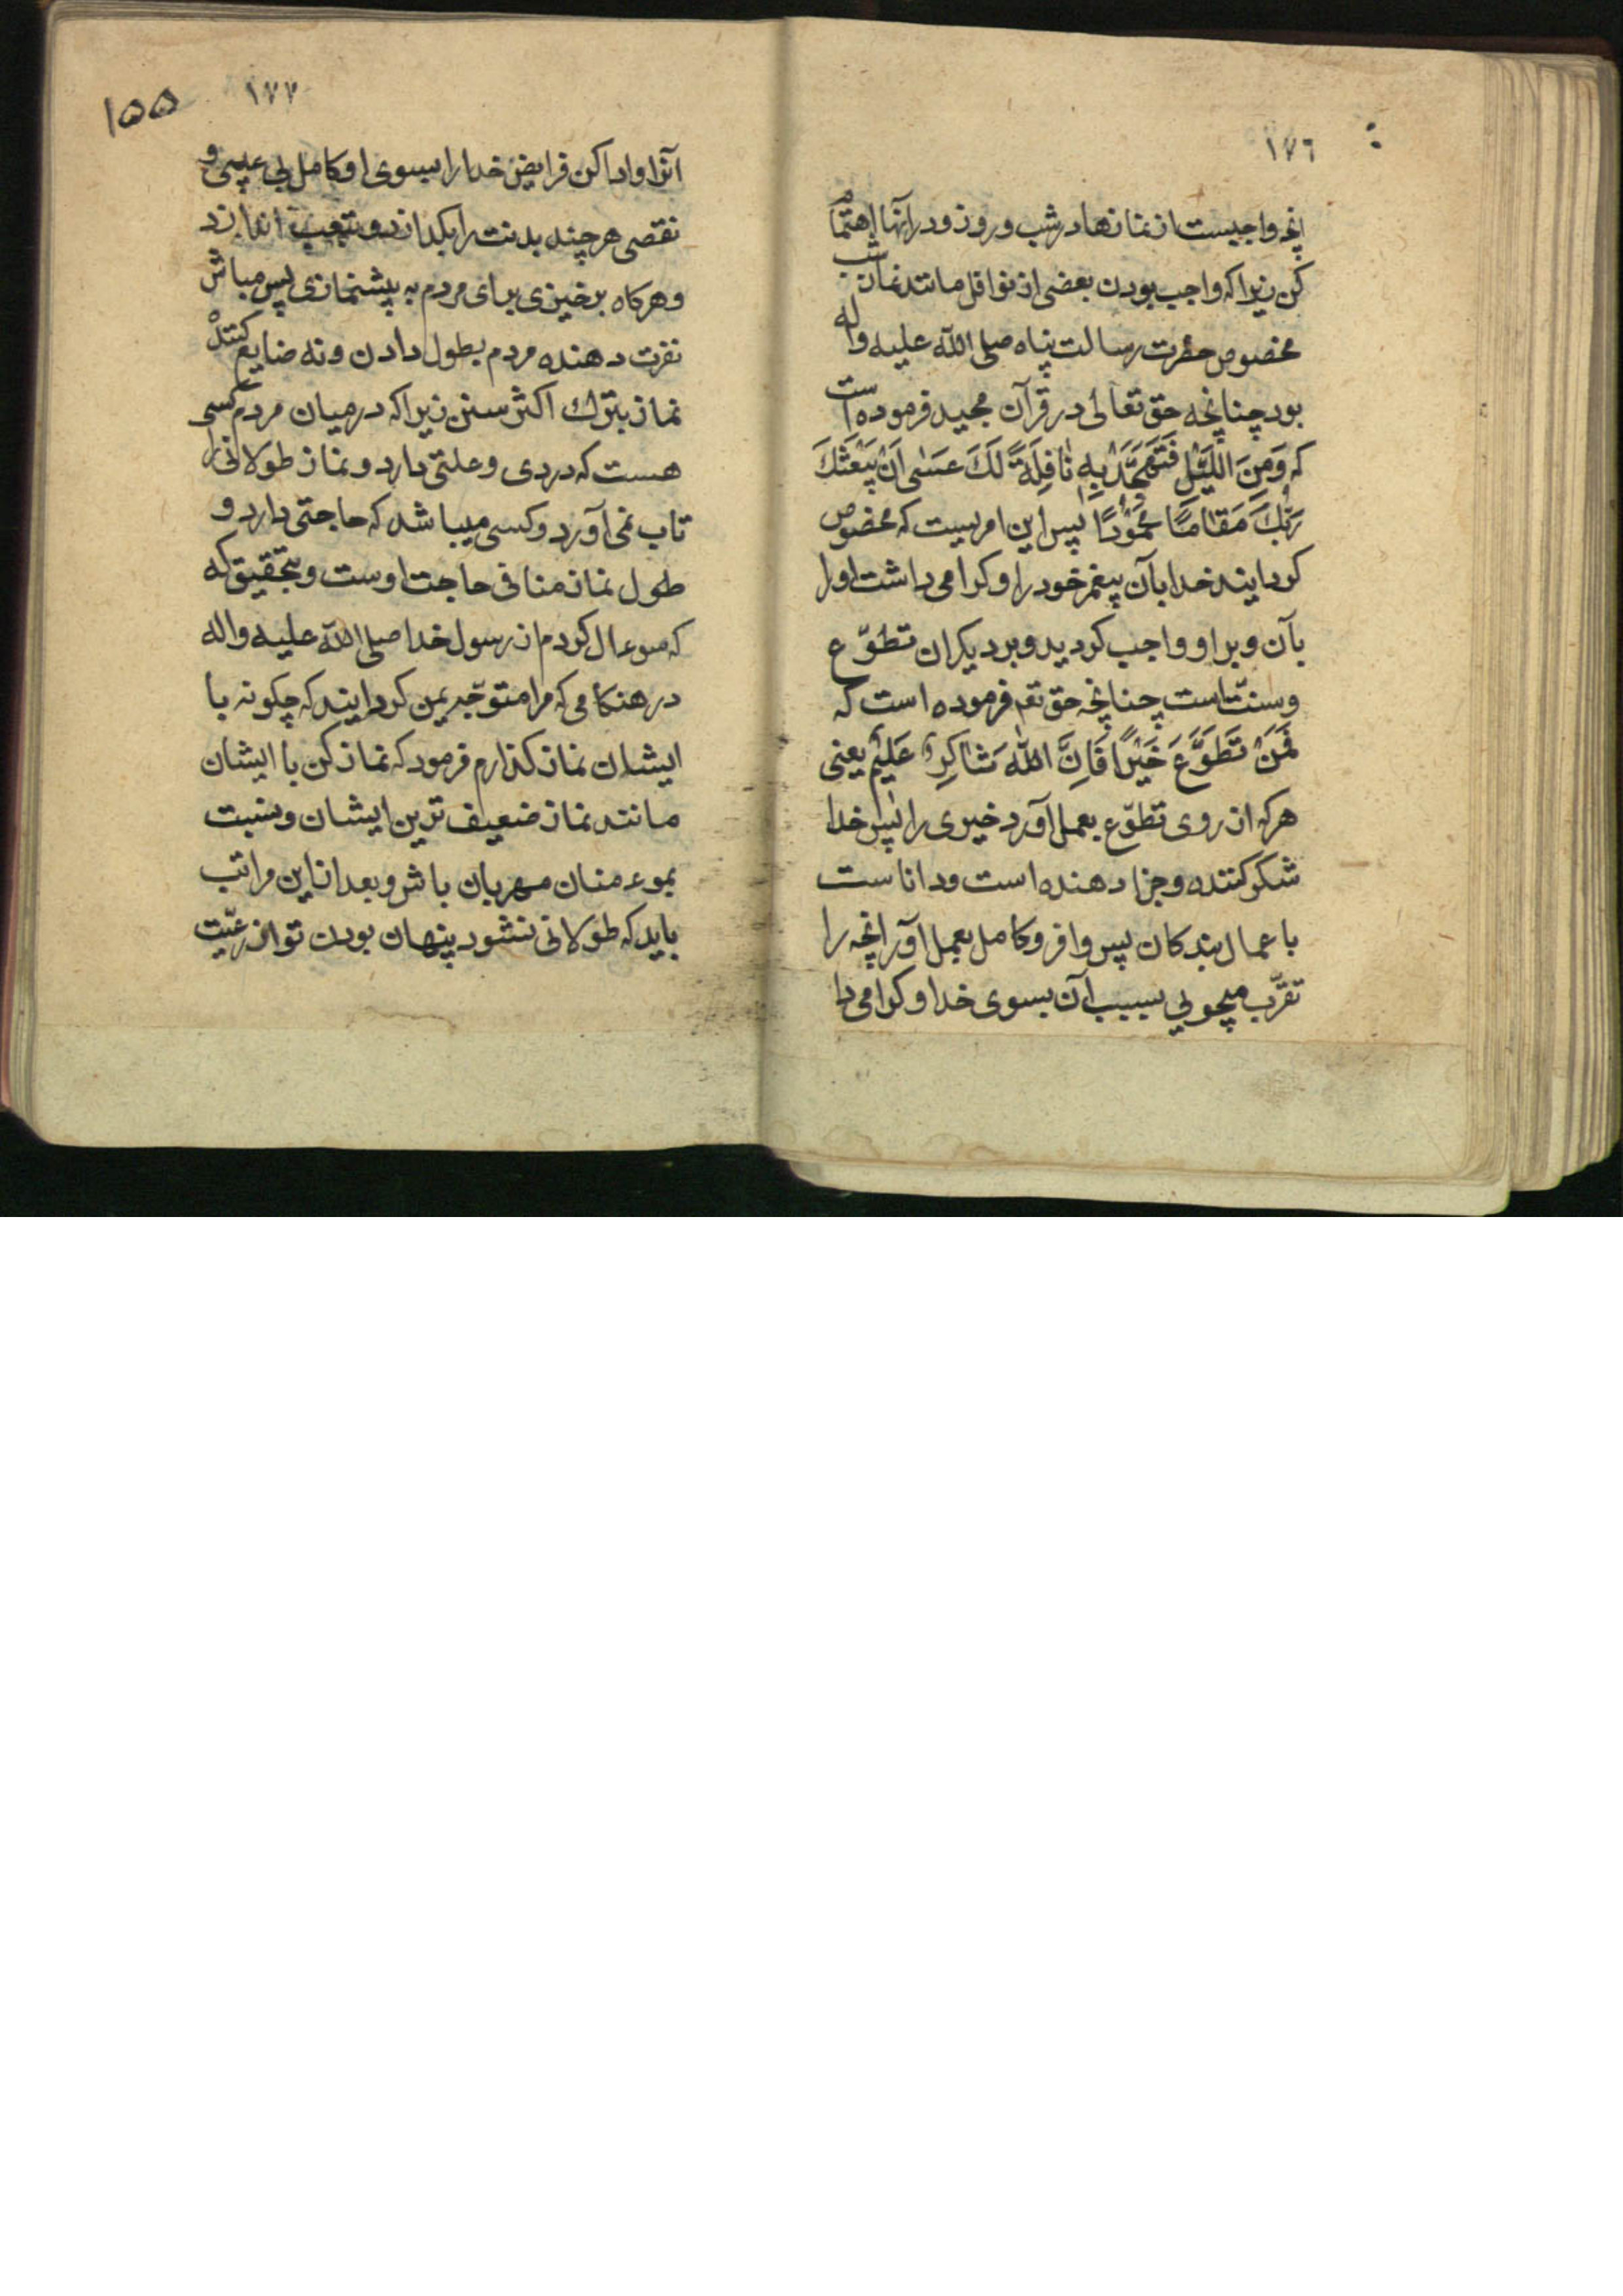 ١٧٦
انچه واجبست از نمازها در شب و روز و در آنها اهتمام
کن زیرا که واجب بودن بعضی از نوافل مانند نماز شب
مخصوص حضرت رسالت پناه صلی الله علیه واله
بود چنانچه حق تعالی در قرآن مجید فرموده است
که وَمِنَ اللَّیْلِ فَتَهَجَّدْ بِهِ نٰافِلَةً لَكَ عَسٰی اَنْ یَبْعَثَكَ
رَبُّكَ مَقٰامًا مَحْمُوْدًا پس این امریست که مخصوص
کردانید خدا بآن پیغمبر خود را و کرامی داشت او را
بآن و بر او واجب کردید و بر دیکران تطوّع
و سنّت است چنانچه حق تعم فرموده است که
فَمَنْ تَطَوَّعَ خَیْرًا فَاِنَّ اللّٰهَ شٰاکِرٌ عَلیْمٌ یعنی
هرکه از روی تطوّع بعمل آورد خیری را پس خدا
شکر کننده و جزا دهنده است و داناست
باعمال بندکان پس وافر و کامل بعمل آور انچه را
تقرّب میجویی بسبب آن بسوی خدا و کرامی دا
١٧٧
۱۵۵
آنرا و ادا کن فرایض خدا را بسوی او کامل بی عیبی و
نقصی هرچند بدنت را بکدازد و بتعب اندازد
و هرکاه برخیزی برای مردم به پیشنمازی پس مباش
نفرت دهنده مردم بطول دادن و نه ضایع کننده
نماز بترك اکثر سنن زیرا که در میان مردم کسی
هست که دردی و علتی دارد و نماز طولانی را
تاب نمی آورد و کسی میباشد که حاجتی دارد و
طول نماز منافی حاجت اوست و بتحقیق که
که سوءال کردم از رسول خدا صلی الله علیه واله
در هنکامی که مرا متوجّه یمن کردانید که چکونه با
ایشان نماز کذارم فرمود که نماز کن با ایشان
مانند نماز ضعیف ترین ایشان و بنسبت
بموءمنان مهربان باش و بعد از این مراتب
باید که طولانی نشود پنهان بودن تو از رعیّت